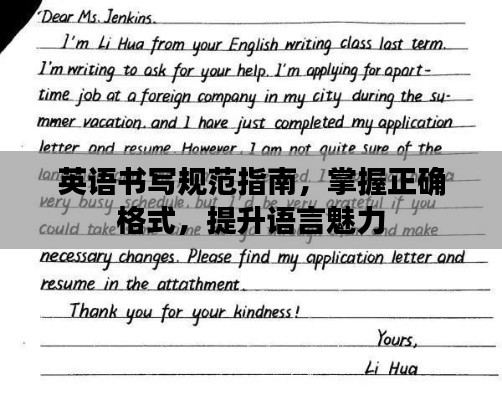 Dear Ms. Jenkins.
I'm Li Hua from your English writing class last term.
I'm writing to ask for your help. I'm applying for apart-
time job at a foreign company in my city during the su-
mmer vacation. and I have just completed my application
letter and resume. However, I am not quite sure of the
英语书写规范指南，掌握正确
very busy schedule, but I'd be very grateful if you
格式，提升语言魅力
could take and make
necessary changes. Please find my application letter and
resume in the attathment.
Thank you for your kindness!
Yours,
Li Hua